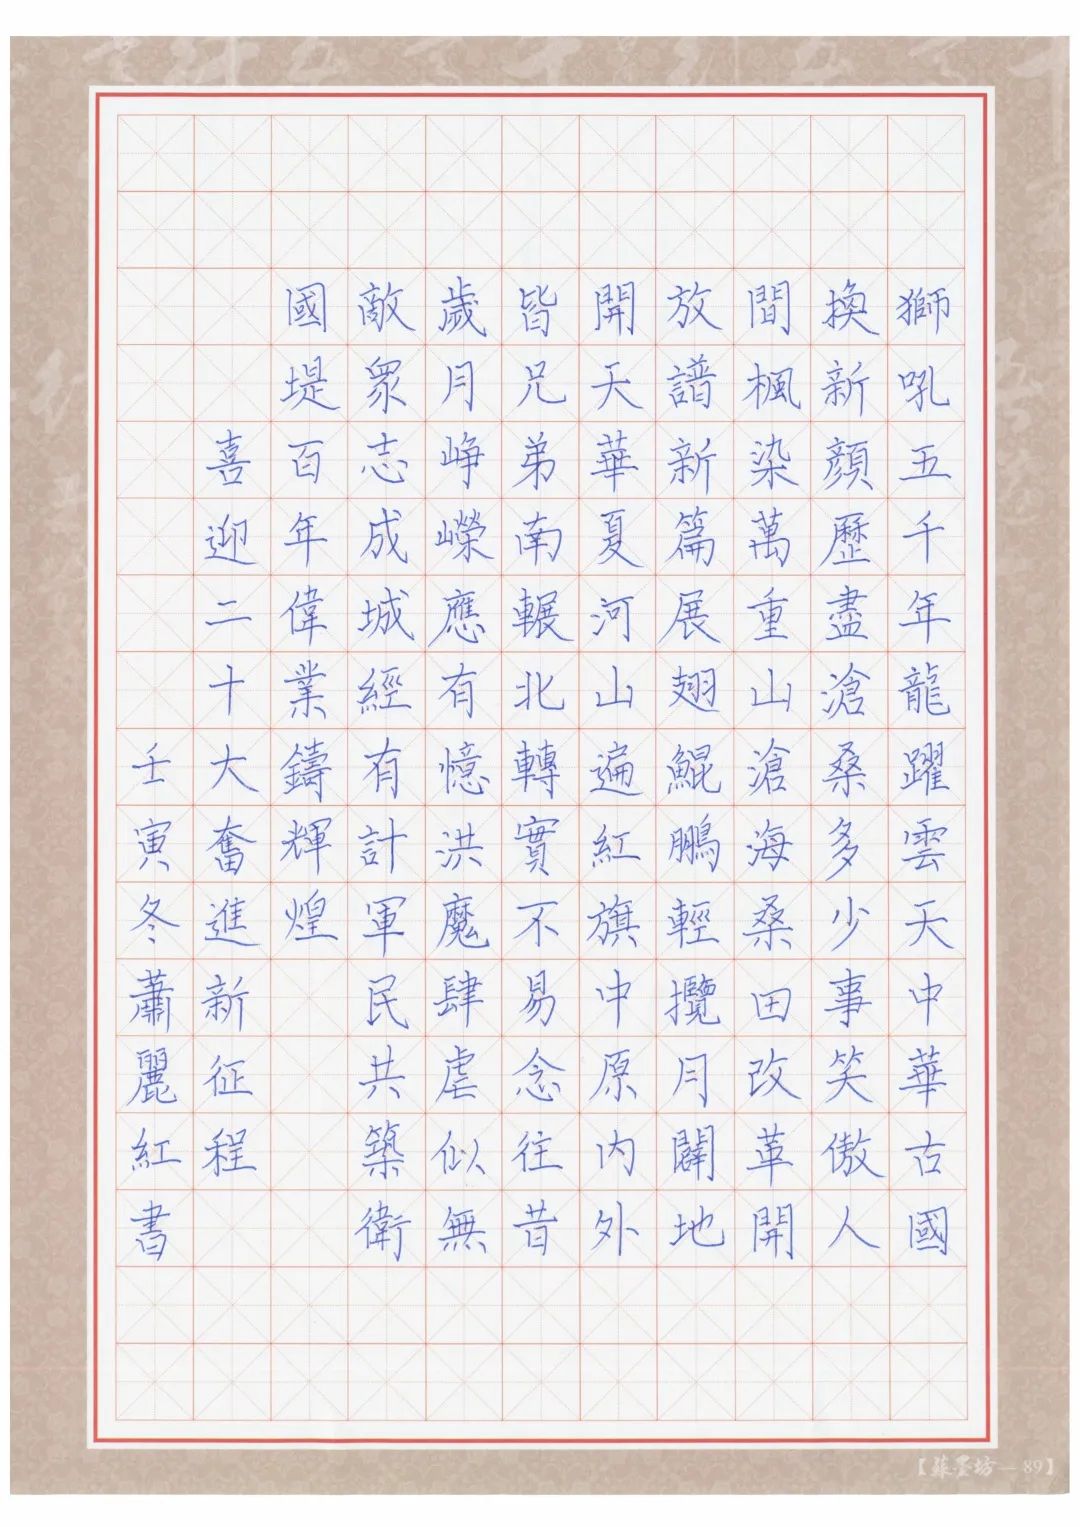 獅吼五千年龍躍雲天中華古國
換新顏歷盡滄桑多少事笑傲人
間楓染萬重山滄海桑田改革開
放譜新篇展翅鯤鵬輕攬月闢地
開天華夏河山遍紅旗中原內外
皆兄弟南輾北轉實不易念往昔
歲月崢嶸應有憶洪魔肆虐似無
敵眾志成城經有計軍民共築衛
國堤百年偉業鑄輝煌
喜迎二十大奮進新征程
壬寅冬蕭麗紅書
【蘇墨坊—89】